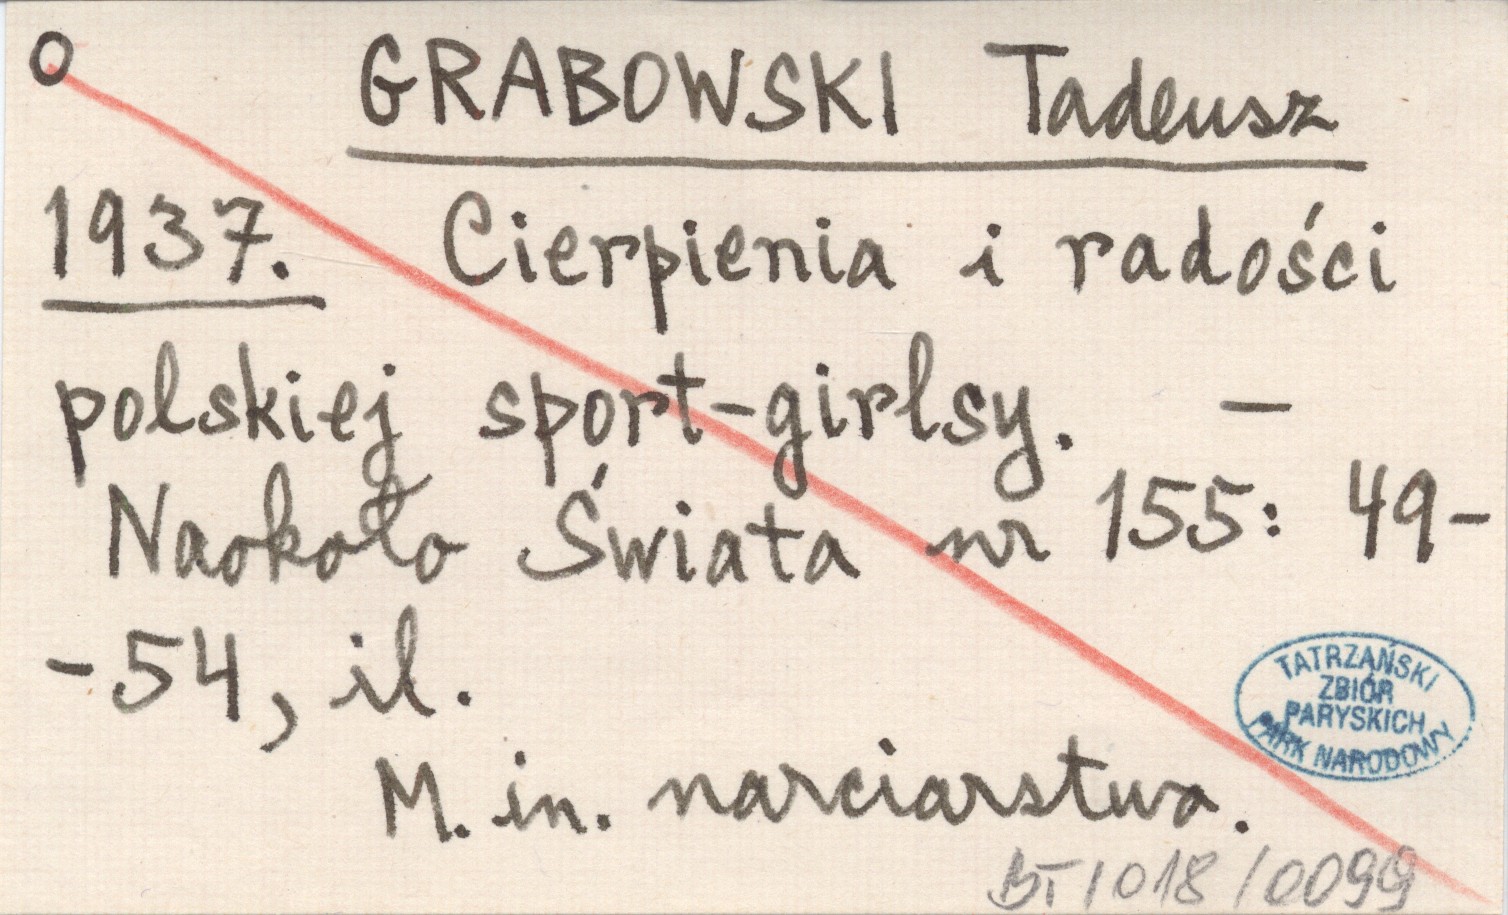 O GRABOWSKI Tadeusz
1937. Cierpienia i radości
polskiej sport-girlsy. —
Naokoło Świata nr 155: 49-
-54, il.
M. in. narciarstwo.
TATRZAŃSKI
ZBIÓR
PARYSKICH
PARK NARODOWY
BT/018/0099